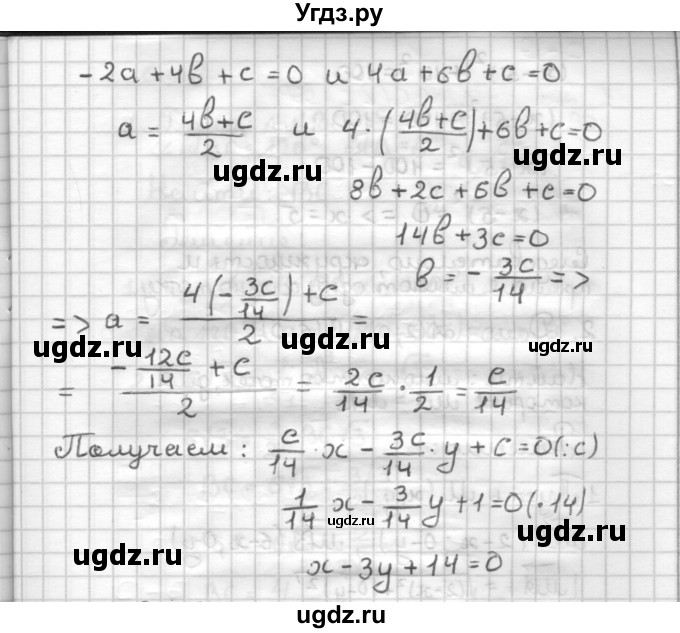 Угдз.ру
-2a + 4b + c = 0 и 4a + 6b + c = 0
a = (4b+c)/2 и 4 · ((4b+c)/2) + 6b + c = 0
ugdz.ru ugdz.ru
8b + 2c + 6b + c = 0
14b + 3c = 0
b = - 3c/14 =>
=> a = (4(- 3c/14) + c)/2 =
ugdz.ru ugdz.ru ugdz.ru
= (- 12c/14 + c)/2 = 2c/14 · 1/2 = c/14
Получаем: c/14 · x - 3c/14 · y + c = 0 (:c)
ugdz.ru
1/14 x - 3/14 y + 1 = 0 (·14)
ugdz.ru
ugdz.ru ugdz.ru
x - 3y + 14 = 0
ugdz.ru